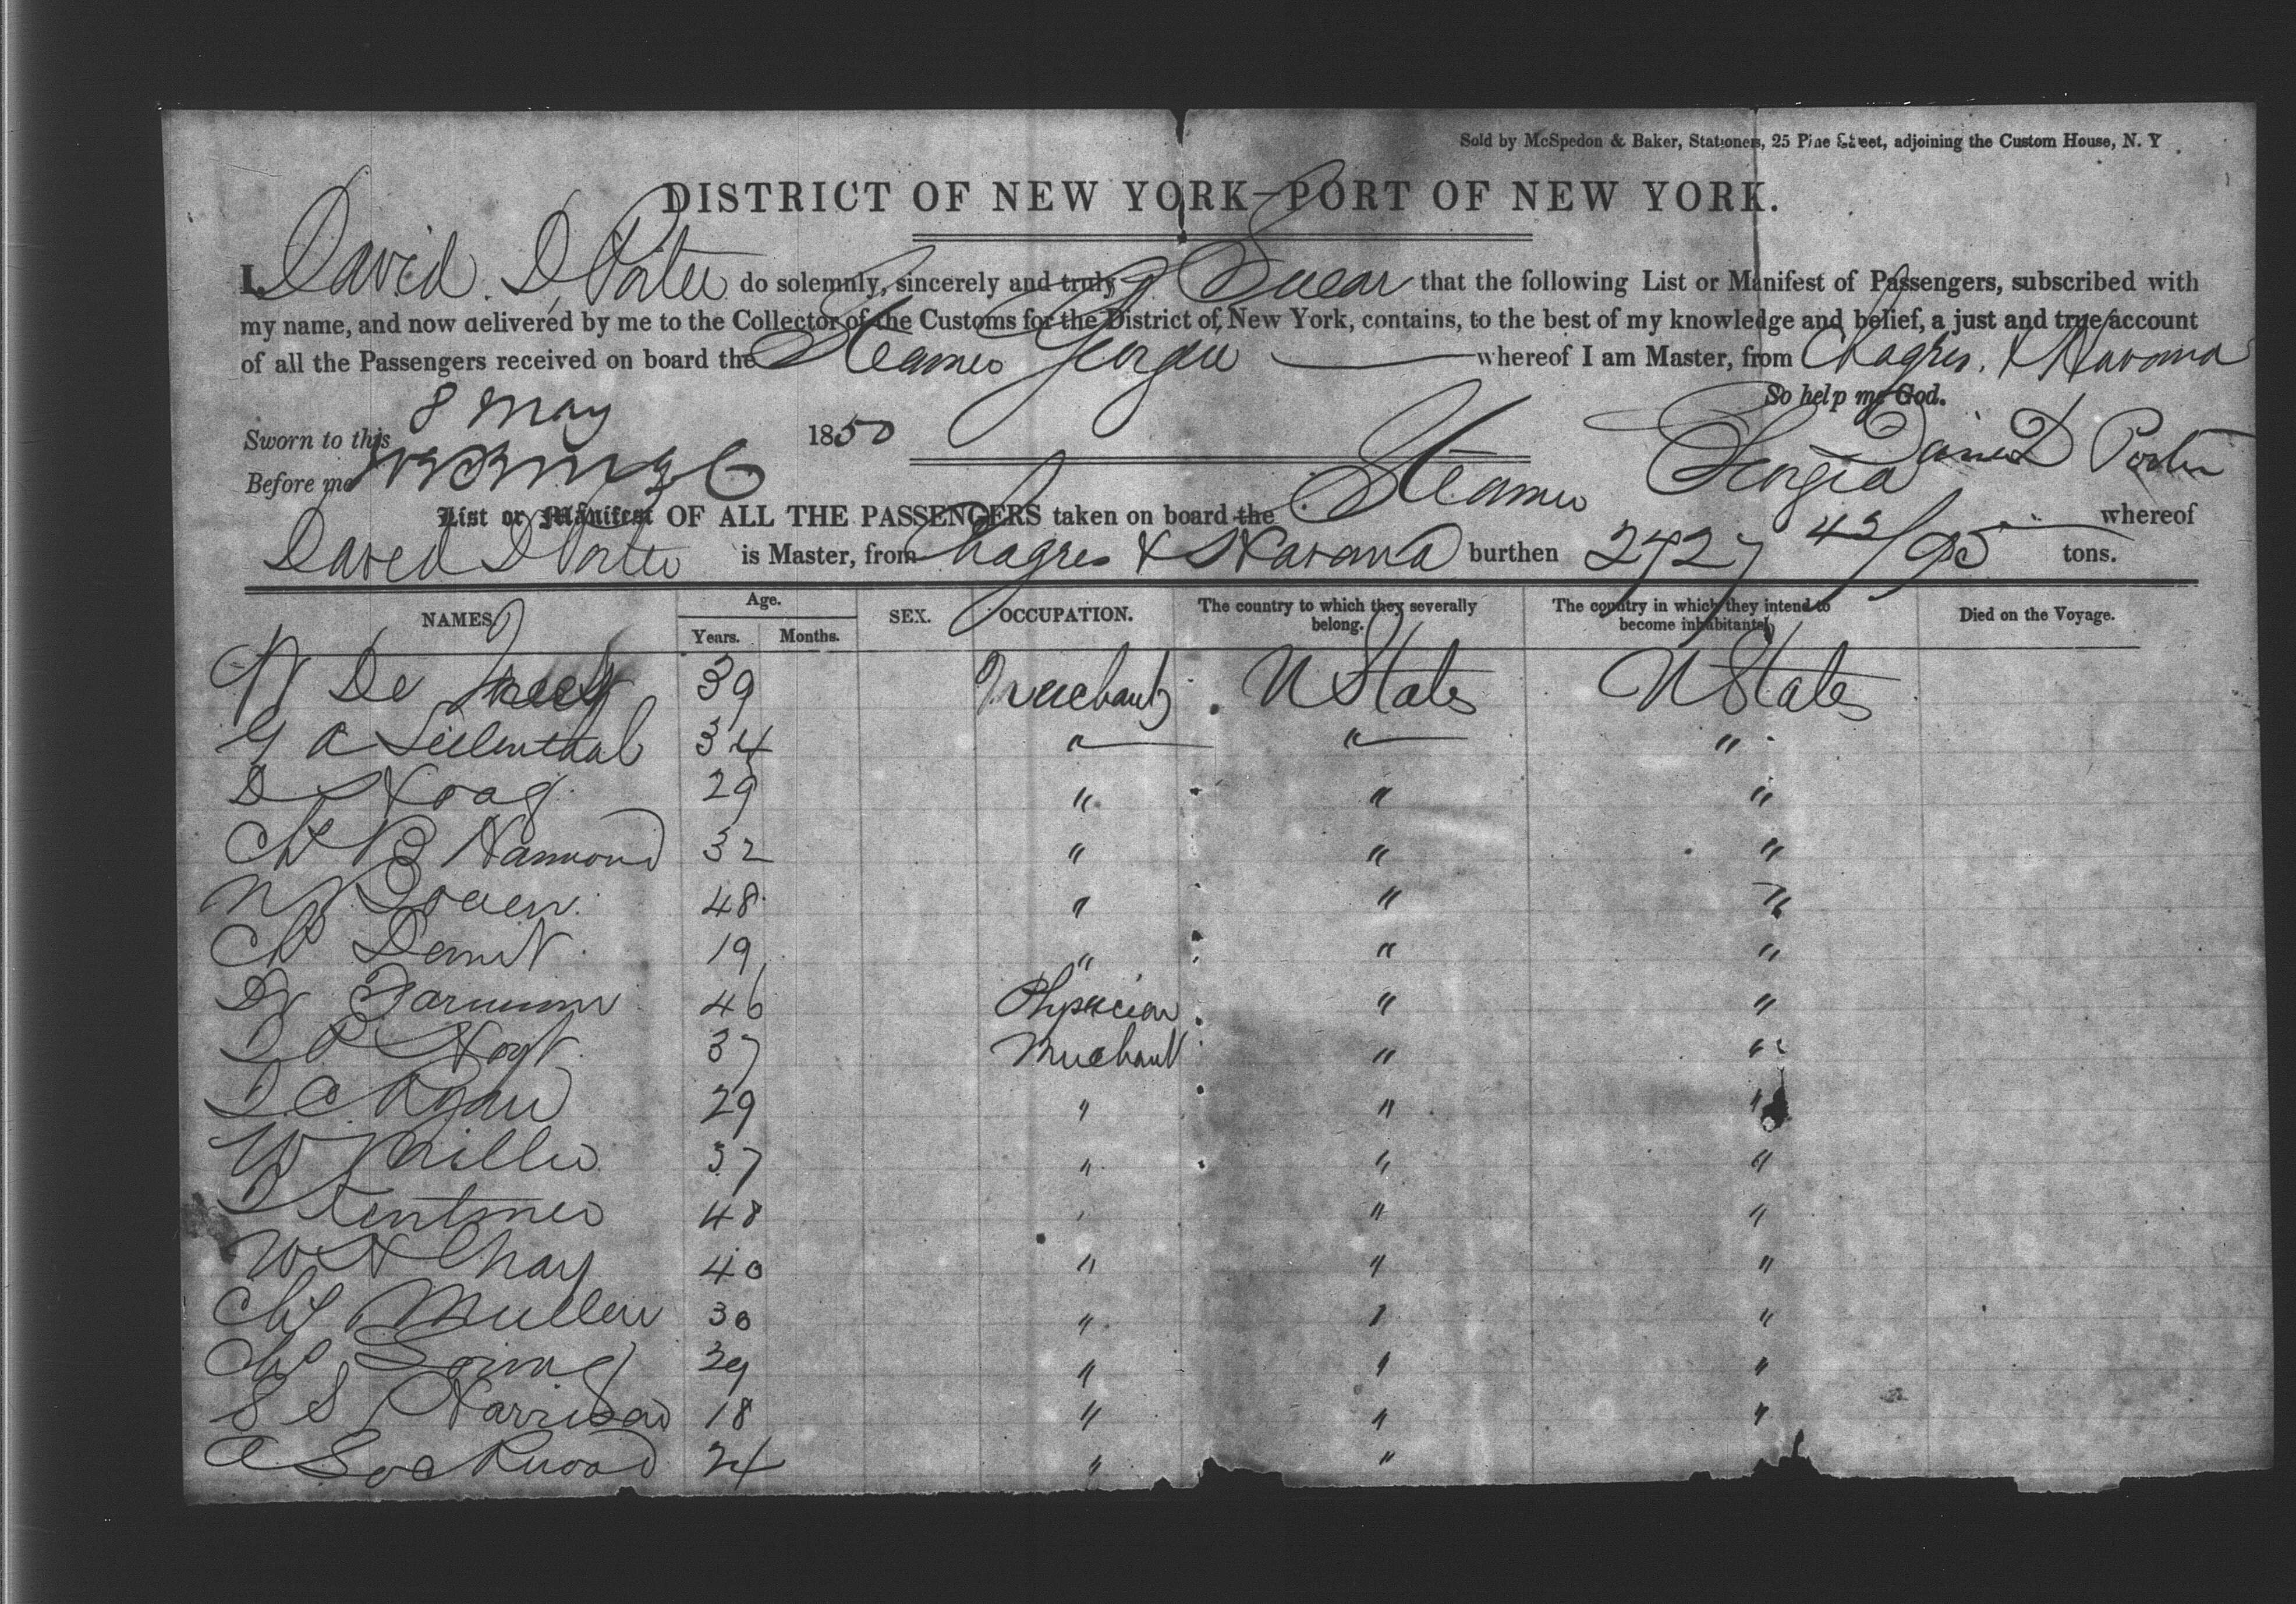 Sold by McSpedon & Baker, Stationers, 25 Pine Street, adjoining the Custom House, N. Y
DISTRICT OF NEW YORK—PORT OF NEW YORK.
I, David D Porter do solemnly, sincerely and truly Swear that the following List or Manifest of Passengers, subscribed with
my name, and now delivered by me to the Collector of the Customs for the District of New York, contains, to the best of my knowledge and belief, a just and true account
of all the Passengers received on board the Steamer Georgia whereof I am Master, from Chagres & Havana
So help me God.
Sworn to this 8 May 1850
David D Porter
Before me
List or Manifest OF ALL THE PASSENGERS taken on board the Steamer Georgia whereof
David D Porter is Master, from Chagres & Havana burthen 2727 43/95 tons.
NAMES. Age. Years. Months. SEX. OCCUPATION. The country to which they severally belong. The country in which they intend to become inhabitants. Died on the Voyage.
De 39 Merchant U States U States
G A Lilienthal 34 " " "
D Hoag 29 " " "
Chs B Hammond 32 " " "
N Bowen 48 " " "
Ch Demit 19 " " "
Dr Farnum 46 Physician " "
D P Hoyt 37 Merchant " "
D C Ryan 29 " " "
W Miller 37 " " "
48 " " "
W H Chay 40 " " "
Chs Mullen 30 " " "
Chs Loring 29 " " "
S S Harrison 18 " " "
A Lockwood 24 " "